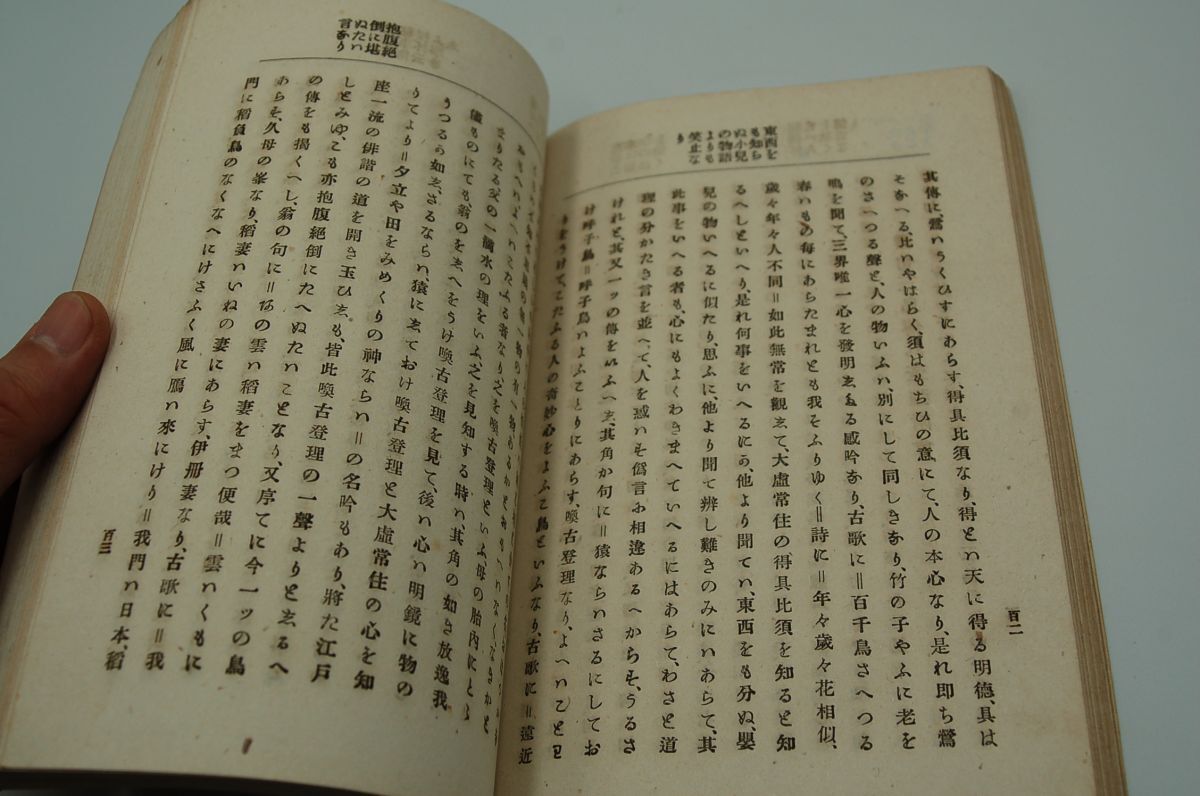 東西を
も知ら
ぬ小兒
の物語
よりも
笑止な
り
其傳に、鶯ハうくひすにあらす、得具比須なり得とハ天に得る明德、具は
そなへる、比いやはらく、須はもちひの意にて、人の本心なり、是れ即ち鶯
のさへつる聲と、人の物いふハ、別にして同しきなり、竹の子やふに老を
鳴を聞て、三界唯一心を發明志たる感吟なり、古歌に＝百千鳥さへつる
春ハもの每にあらたまれとも我そふりゆく＝詩に＝年々歲々花相似、
歲々年々人不同＝如此無常を觀志て、大虛常住の得具比須を知ると知
るへしといへり、是れ何事をいへるにう、他より聞てハ、東西をも分ぬ、嬰
兒の物いへるに似たり、思ふに、他より聞て辨し難きのみにハあらて、其
此事をいへる者も、心にもよくわきまへていへるにはあらて、わさと道
理の分かたき言を並へて、人を惑いも僞言に相違あるへからそ、うるさ
けれと、其又一ッの傳をいふへ志、其角か句に＝猿ならハさるにしてお
け呼子鳥＝呼子鳥ハよふことりにあらす、喚古登理なり、よへハひとヨ
りをうけて、こたふる人の奇妙心をよふこ鳥といふなり、古歌に＝遠近
百二
抱腹絕
倒に堪
ぬたハ
言なり
まりたる父の一滴水の理をいふ、之を見知する時ハ、其角の如き放逸我
儘ものにても翁のを志へをうけ喚古登理を見て、後ハ心ハ明鏡に物の
うつるう如志、さるならハ、猿に志ておけ喚古登理と大虛常住の心を知
りてより＝夕立や田をみめくりの神ならハ＝の名吟もあり、將た江戶
座一流の俳諧の道を開き玉ひ志も、皆此喚古登理の一聲よりと志るへ
しとみゆ、こも亦抱腹絕倒にたへぬたハことなり、又序てに今一ッの鳥
の傳をも揭くへし、翁の句に＝あの雲ハ稻妻をまつ便哉＝雲ハくもに
あらそ、久母の峯なり、稻妻ハいねの妻にあらす、伊册妻なり、古歌に＝我
門に稻負鳥のなくなへにけさふく風に鴈ハ來にけり＝我門ハ日本、稻
百三